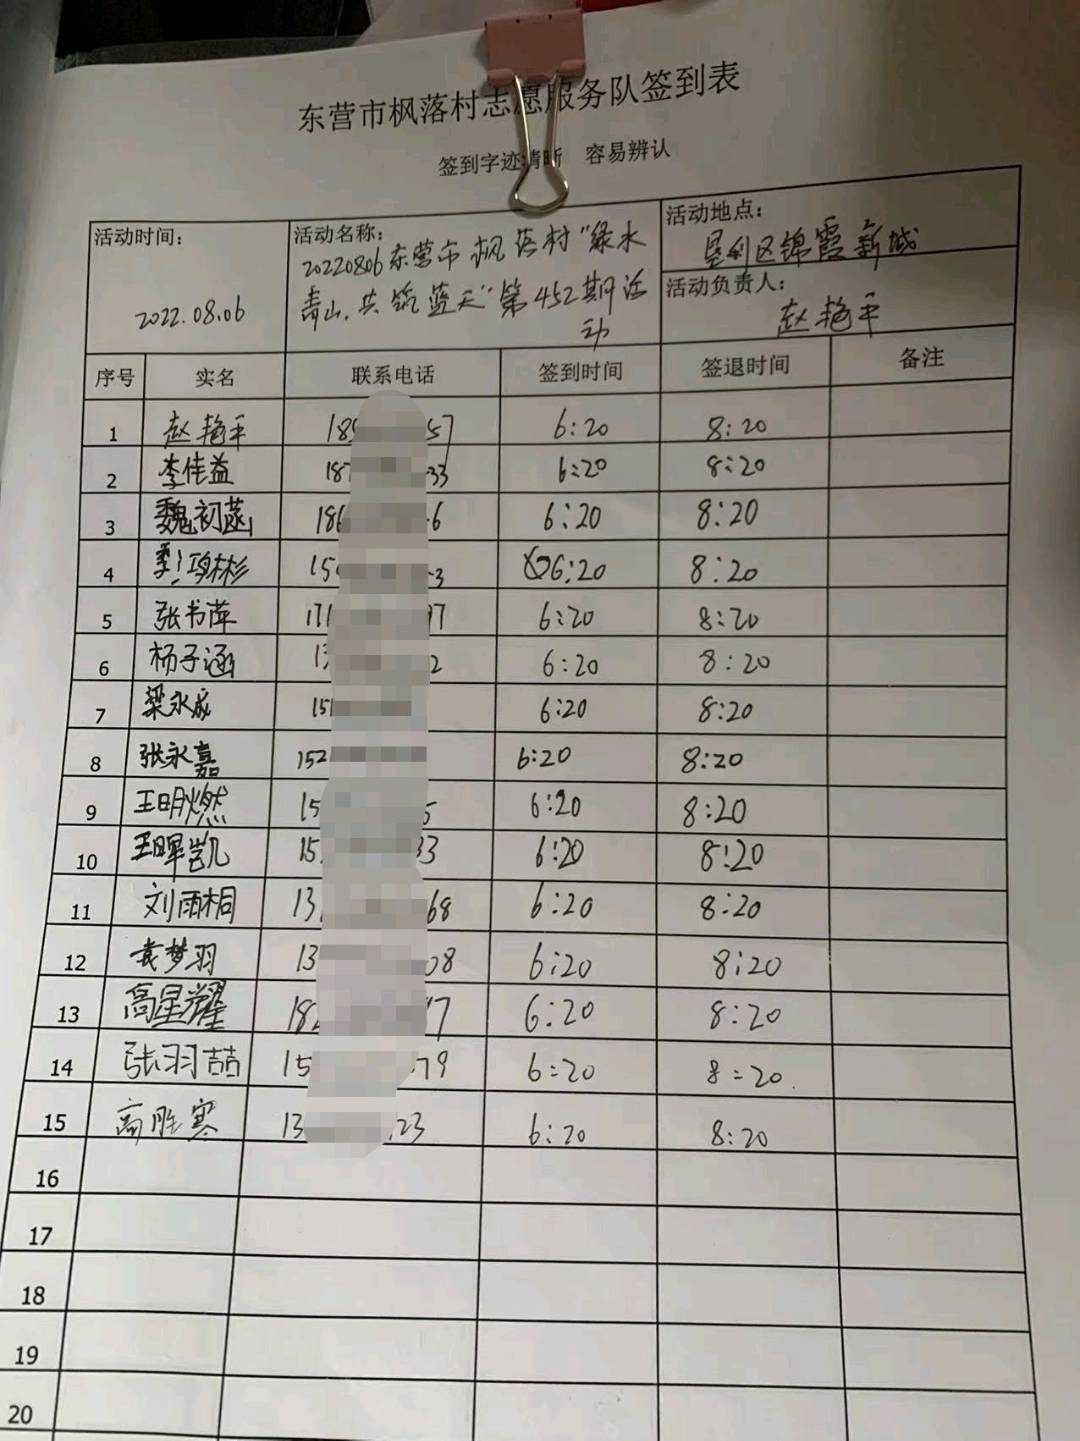 东营市枫落村志愿服务队签到表
签到字迹清晰 容易辨认
活动时间:
2022.08.06
活动名称:
20220806东营市枫落村"绿水
青山,共筑蓝天"第452期活
动
活动地点:
垦利区锦霞新城
活动负责人:
赵艳平
序号 实名 联系电话 签到时间 签退时间 备注
1 赵艳平 18 57 6:20 8:20
2 李佳益 187 33 6:20 8:20
3 魏初菡 186 6 6:20 8:20
4 15 3 6:20 8:20
5 张书萍 171 97 6:20 8:20
6 杨子涵 13 2 6:20 8:20
7 梁永成 151 6:20 8:20
8 张永嘉 152 6:20 8:20
9 王明燃 15 5 6:20 8:20
10 王晖凯 15 33 6:20 8:20
11 刘雨桐 13 68 6:20 8:20
12 袁梦羽 13 08 6:20 8:20
13 高星耀 18 7 6:20 8:20
14 张羽喆 15 79 6:20 8:20
15 高胜寒 13 23 6:20 8:20
16
17
18
19
20